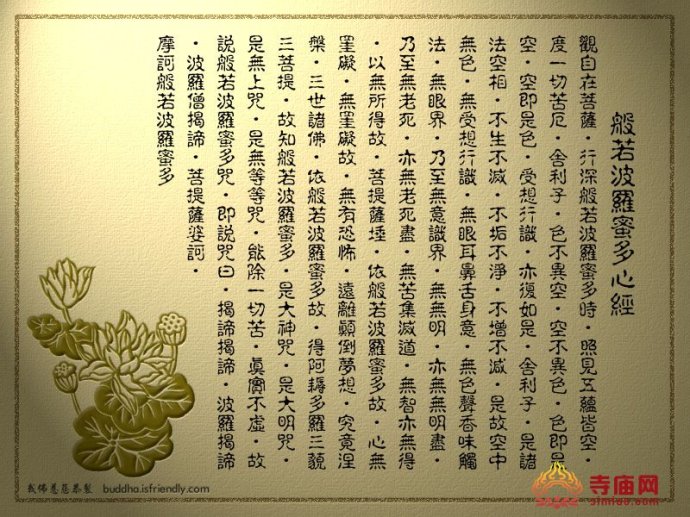 般若波羅蜜多心經
觀自在菩薩·行深般若波羅蜜多時·照見五蘊皆空·
度一切苦厄·舍利子·色不異空·空不異色·色即是
空·空即是色·受想行識·亦復如是·舍利子·是諸
法空相·不生不滅·不垢不淨·不增不減·是故空中
無色·無受想行識·無眼耳鼻舌身意·無色聲香味觸
法·無眼界·乃至無意識界·無無明·亦無無明盡·
乃至無老死·亦無老死盡·無苦集滅道·無智亦無得
·以無所得故·菩提薩埵·依般若波羅蜜多故·心無
罣礙·無罣礙故·無有恐怖·遠離顛倒夢想·究竟涅
槃·三世諸佛·依般若波羅蜜多故·得阿耨多羅三藐
三菩提·故知般若波羅蜜多·是大神咒·是大明咒·
是無上咒·是無等等咒·能除一切苦·真實不虛·故
說般若波羅蜜多咒·即說咒曰·揭諦揭諦·波羅揭諦
·波羅僧揭諦·菩提薩婆訶·
摩訶般若波羅蜜多
我佛慈悲恭製 buddha.isfriendly.com
寺庙网
simiao.com